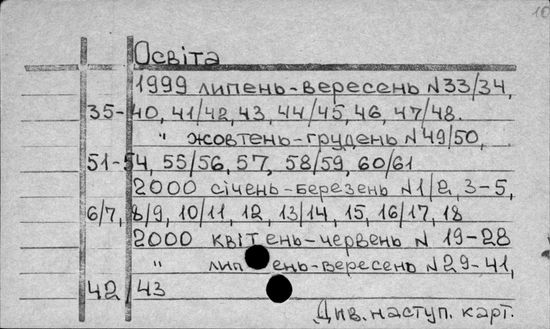 10
Освіта
1999 липень-вересень N33/34,
35-40, 41/42, 43, 44/45, 46, 47/48.
" жовтень-грудень N49/50,
51-54, 55/56, 57, 58/59, 60/61
2000 січень-березень N1/2, 3-5,
6/7, 8/9, 10/11, 12, 13/14, 15, 16/17, 18
2000 квітень-червень N 19-28
" липень-вересень N29-41,
42/43
Див. наступ. карт.